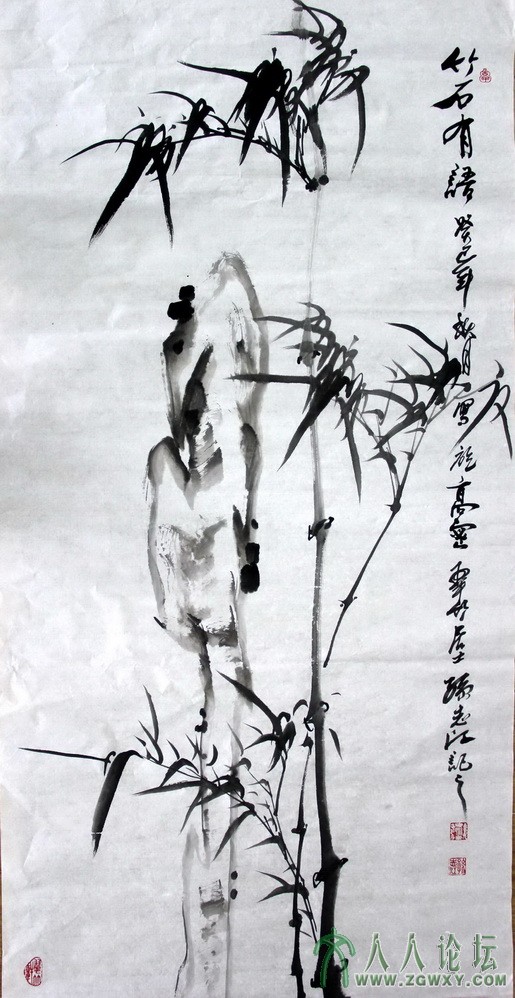 竹石有語 癸巳年 秋月 寫於高密 聚竹居 孫志江記之
人人论坛
WWW.ZGWXY.COM